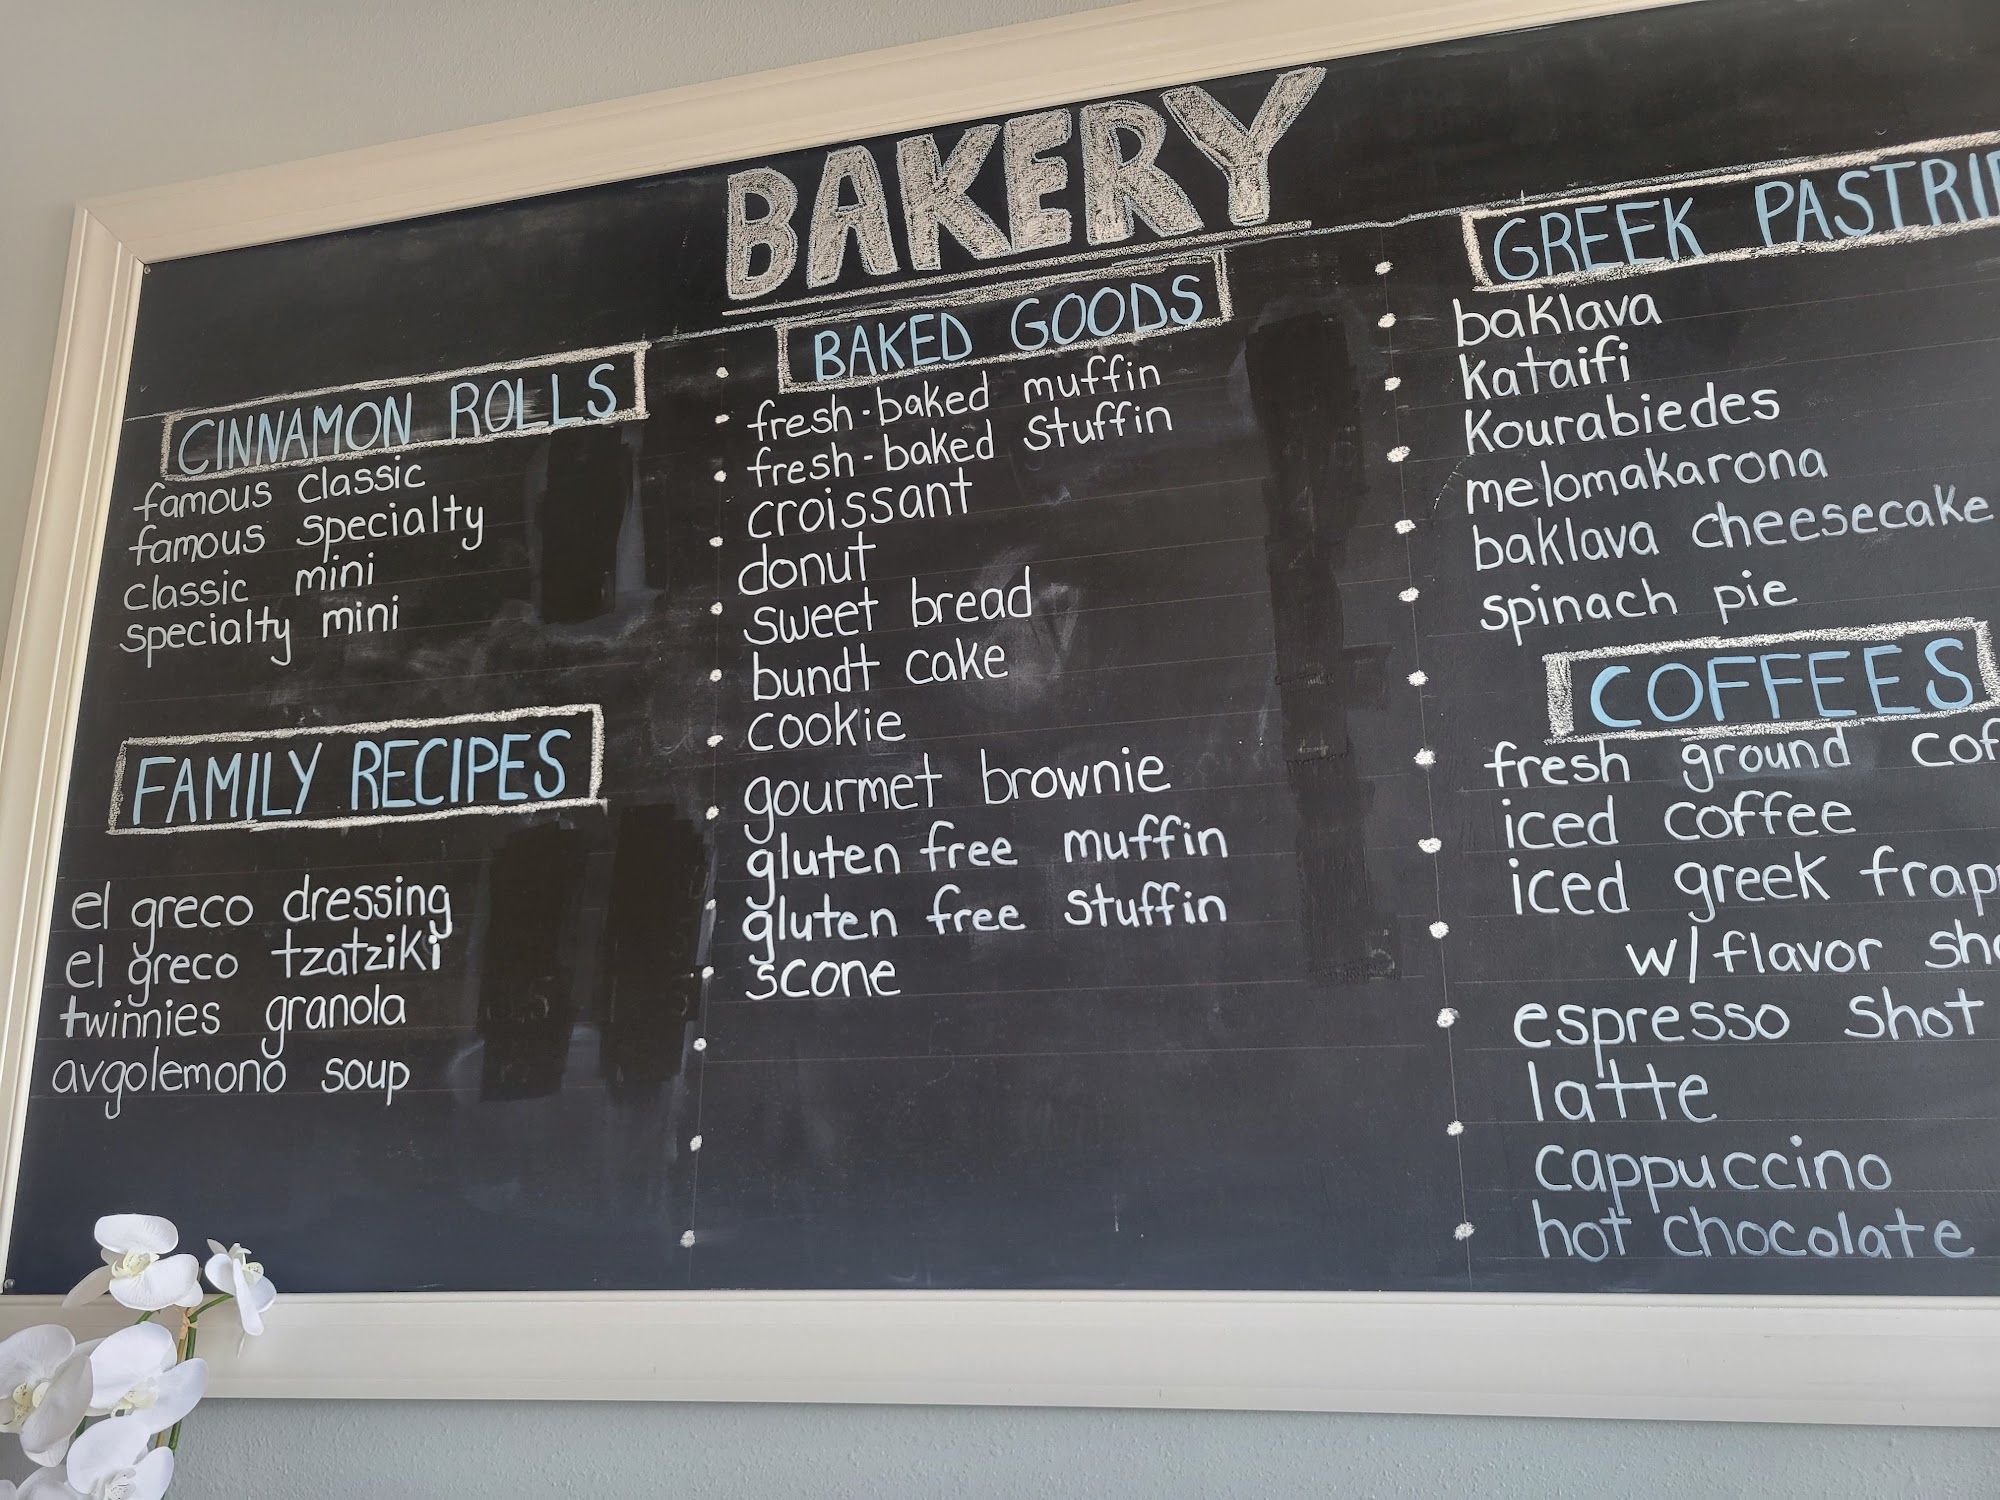 BAKERY
CINNAMON ROLLS
famous classic
famous specialty
classic mini
specialty mini
FAMILY RECIPES
el greco dressing
el greco tzatziki
twinnies granola
avgolemono soup
BAKED GOODS
fresh-baked muffin
fresh-baked stuffin
croissant
donut
sweet bread
bundt cake
cookie
gourmet brownie
gluten free muffin
gluten free stuffin
scone
GREEK
baklava
kataifi
kourabiedes
melomakarona
baklava cheesecake
spinach pie
COFFEES
fresh ground
iced coffee
iced greek
w/flavor
espresso shot
latte
cappuccino
hot chocolate